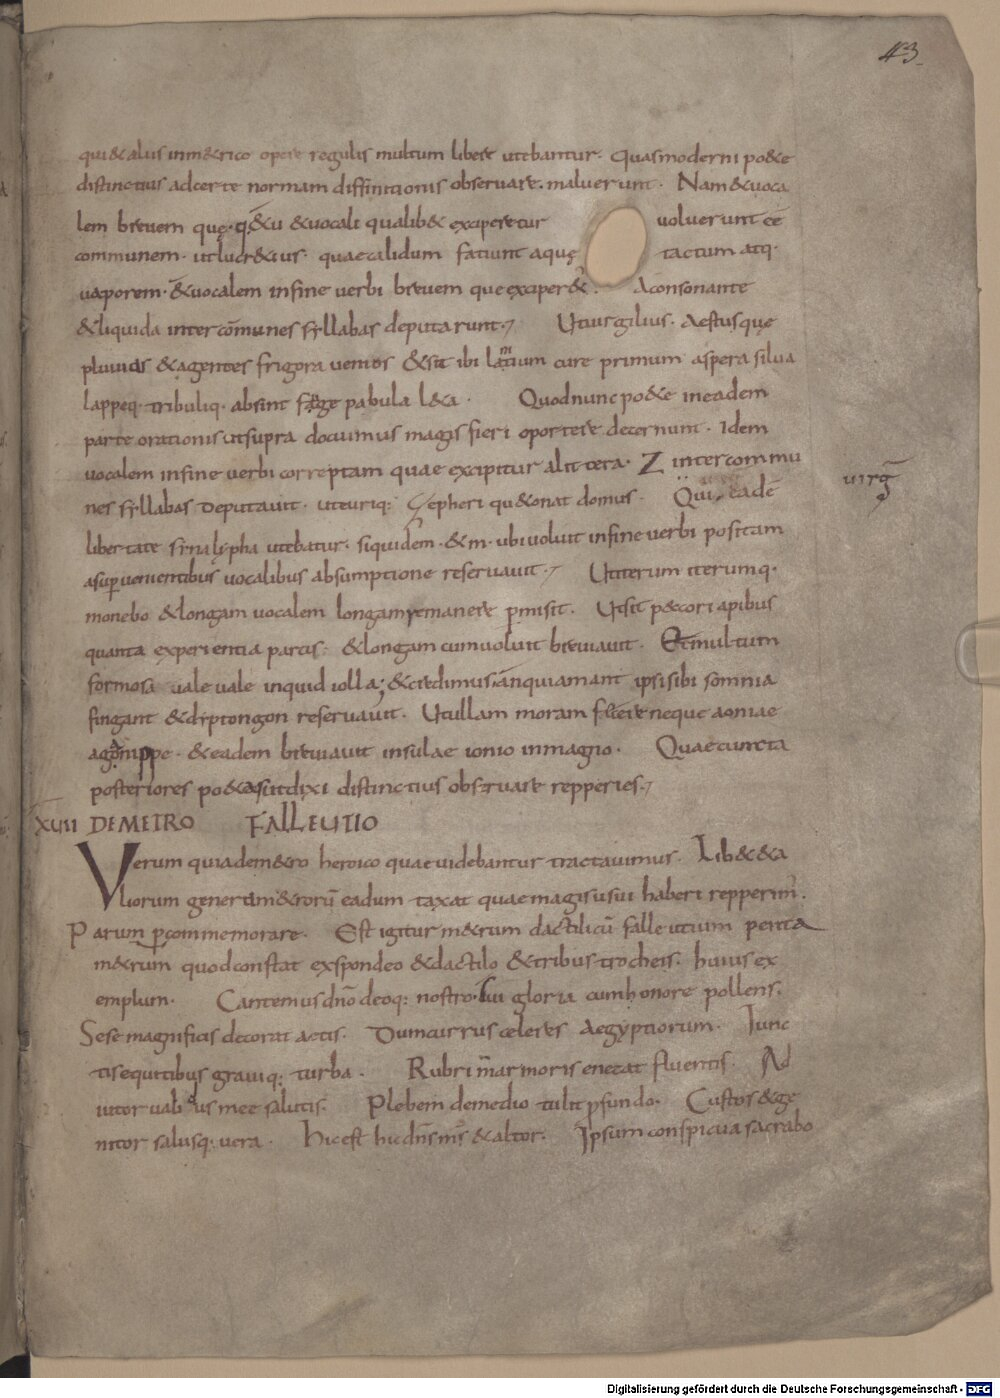 43
qui & aliis in m&rico opere regulis multum libere utebantur. Quas moderni po&e
distinctius ad certe normam diffinitionis observare. maluerunt. Nam & voca
lem brevem quę. q. &u & vocali qualib& exciperetur voluerunt eē
communem. ut lucr&ius. quae calidum faciunt aquę tactum atq.
vaporem. & vocalem in fine verbi brevem que exciper&. A consonante
& liquida inter cōmunes syllabas deputarunt. Ut virgilius. Aestusque
pluvias & agentes frigora ventos & sit ibi lantium cure primum aspera silva
lappeq. tribuliq. absint fuge pabula l&a. Quod nunc po&e in eadem
parte orationis ut supra docuimus magis fieri oportere decernunt. Idem
vocalem in fine verbi correptam quae excipitur a littera. Z inter commu
virḡ
nes syllabas Deputavit. ut euriq: Zepheri qu& onat domus. Qui eadē
libertate synalypha utebatur. siquidem. & m. ubi voluit in fine verbi positam
a supervenientibus vocalibus absumptione reservavit. Ut iterum iterumq.
monebo & longam vocalem longam remanere p̄misit. Ut sit p&cori apibus
quanta experientia parcis. & longam cum voluit breviavit. Et multum
formosa vale vale inquid iolla; & credimus. an qui amant ipsi sibi somnia
fingant & dyptongon reservavit. Ut ullam moram fecere neque aoniae
aganippe. & eadem breviavit insulae ionio in magno. Quae cuncta
posteriores po&as ut dixi distinctius observare repperies.
XVII DE METRO FALLEUTIO
Verum quia de m&ro heroico quae videbantur tractavimus. Lib& & a
liorum generum m&rorū ea dum taxat quae magis usui haberi repperim.
Parum p commemorare. Est igitur m&rum dactilicū falleutium penta
m&rum quod constat ex spondeo & dactilo & tribus trocheis. huius ex
emplum. Cantemus dn̄o deoq: nostro. Cui gloria cum honore pollens.
Sese magnificis decorat actis. Dum currus celeres Aegyptiorum. Iunc
tis equitibus graviq: turba. Rubri marmoris enecat fluentis. Ad
iutor validus mee salutis. Plebem de medio tulit p̄fundo. Custos & ge
nitor salusq. vera. Hic est hic dn̄s m̄s & altor. Ipsum conspicua sacrabo
Digitalisierung gefördert durch die Deutsche Forschungsgemeinschaft - DFG